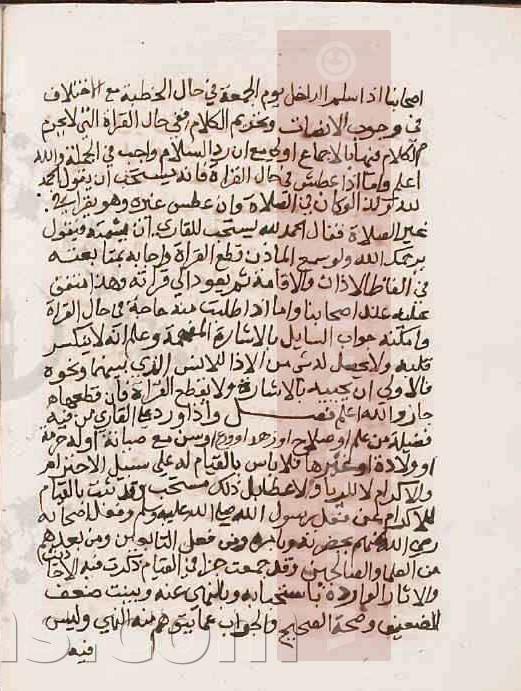 اصحابنا اذا سلم الداخل يوم الجمعة في حال الخطبة مع الاختلاف
في وجوب الانصات وتحريم الكلام ففي حال القراة التي لا يحرم
الكلام فيها بالاجماع اولى مع ان رد السلام واجب في الجملة والله
اعلم واما اذا عطس في حال القراة فانه يستحب ان يقول الحمد
لله كذلك لو كان في الصلاة وان عطس غيره وهو يقرا في
غير الصلاة فقال الحمد لله يستحب للقاري ان يشمته فيقول
يرحمك الله ولو سمع الماذن قطع القراة واجابه بمتابعته
في الفاظ الاذان والاقامة ثم يعود الى قراته وهذا متفق
عليه عند اصحابنا واما اذا طلبت منه حاجة في حال القراة
وامكنه جواب السايل بالاشارة المفهمة وعلم انه لا ينكسر
قلبه ولا يحصل له شي من الاذا للانس الذي بينهما ونحوه
فالاولى ان يجيبه بالاشارة ولا يقطع القراة فان قطعها
جاز والله اعلم فصل واذا ورد على القاري من فيه
فضيلة من علم او صلاح او زهد او ورع او سن مع صيانة او له حرمة
او ولادة او غيرها فلا باس بالقيام له على سبيل الاحترام
والاكرام لا للريا والاعظام بل ذلك مستحب وقد ثبت بالقيام
للاكرام عن فعل رسول الله صلى الله عليه وسلم وفعل اصحابه
رضي الله عنهم بحضرته وبامره ومن فعل التابعين ومن بعدهم
من العلما والصالحين وقد جمعت جزا في القيام ذكرت فيه الاحاديث
والاثار الواردة باستحبابه وبالنهي عنه وبينت ضعف
الضعيف وصحة الصحيح والجواب عما يتوهم منه النهي وليس
فيه